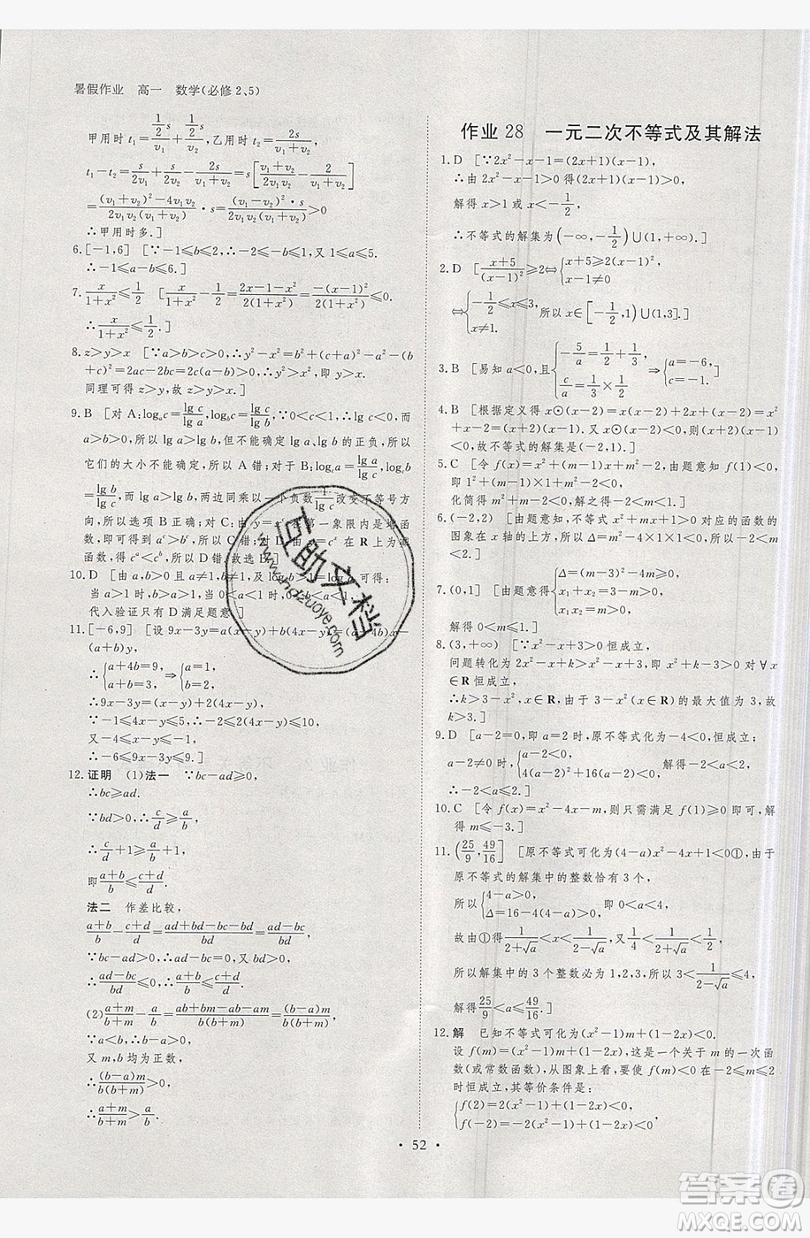 暑假作业 高一 数学(必修2、5)
甲用时t₁=(1/2)s/v₁+(1/2)s/v₂,乙用时t₂=2s/(v₁+v₂),
t₁-t₂=s/2v₁+s/2v₂-2s/(v₁+v₂)=s[(v₁+v₂)/2v₁v₂-2/(v₁+v₂)]
=((v₁+v₂)²-4v₁v₂)/(2v₁v₂(v₁+v₂))·s=(v₁-v₂)²·s/(2v₁v₂(v₁+v₂))>0
∴甲用时多.]
6.[-1,6] [∵-2≤-b≤1,1≤a≤5.
∴-1≤a-b≤6.]
7.x/(1+x²)≤1/2 [∵x/(1+x²)-1/2=(2x-1-x²)/(2(1+x²))=-(x-1)²/(2(1+x²))≤0,
∴x/(1+x²)≤1/2.]
8.z>y>x [∵a>b>c>0,y²-x²=b²+(c+a)²-a²-(b
+c)²=2ac-2bc=2c(a-b)>0,∴y>x.
同理可得z>y,故z>y>x.]
9.B [对A:logₐc=lg c/lg a,log_b c=lg c/lg b,∵0<c<1,∴lg c<0,而
a>b>0,所以lg a>lg b,但不能确定lg a、lg b的正负,所以
它们的大小不能确定,所以A错;
lg b,两边同乘以一个负数1/lg c改变不等号方
向,所以选项B正确;
10.D
当a>1时,b>1;当0<a<1时,0<b<1,
代入验证只有D满足题意.]
11.[-6,9] [设9x-3y=a(x-y)+b(4x-y)=(a+4b)x
-(a+b)y,
∴{a+4b=9, a+b=3⇒{a=1, b=2.
∴9x-3y=(x-y)+2(4x-y),
∵-1≤4x-y≤5,∴-2≤2(4x-y)≤10,
又-4≤x-y≤-1,
∴-6≤9x-3y≤9.]
12.证明 (1)法一 ∵bc-ad≥0,
∴bc≥ad.
∵bd>0,∴c/d≥a/b,
∴c/d+1≥a/b+1,
即(a+b)/b≤(c+d)/d.
法二 作差比较,
(a+b)/b-(c+d)/d=(ad+bd-bc-bd)/bd=(ad-bc)/bd
∵bc-ad≥0,∴ad-bc≤0,
又bd>0,∴(ad-bc)/bd≤0,即(a+b)/b≤(c+d)/d.
(2)(a+m)/(b+m)-a/b=(ab+bm-ab-am)/(b(b+m))=(b-a)m/(b(b+m))
∵a<b,∴b-a>0,
又a,b,m均为正数,
∴(b-a)m/(b(b+m))>0,
∴(a+m)/(b+m)>a/b.
作业28 一元二次不等式及其解法
1.D [∵2x²-x-1=(2x+1)(x-1),
∴由2x²-x-1>0得(2x+1)(x-1)>0,
解得x>1或x<-1/2,
∴不等式的解集为(-∞,-1/2)∪(1,+∞).]
2.D [(x+5)/(x-1)²≥2⇔{x+5≥2(x-1)², x-1≠0
⇔{-1/2≤x≤3, x≠1. 所以x∈[-1/2,1)∪(1,3].]
3.B [易知a<0,{-5/a=1/2+1/3, c/a=1/2×1/3⇒{a=-6, c=-1.]
4.B [根据定义得x⊙(x-2)=x(x-2)+2x+(x-2)=x²
+x-2<0,解得-2<x<1,所以所求的解集是(-2,1).]
5.C [令f(x)=x²+mx+m/2,由题意知f(x)>0恒成立,
化简得m²-2m<0,解之得0<m<2.]
6.(-2,2) [由题意知,不等式x²+mx+1>0对应的函数的
图象在x轴的上方,所以Δ=m²-4×1×1<0,所以-2<m
<2.]
7.(0,1] [由题意得{Δ=(m-3)²-4m≥0, x₁+x₂=3-m>0, x₁x₂=m>0. 解得0<m≤1.]
8.(3,+∞) [∵x²-x+1>0恒成立,
问题转化为2x²-2x+k>x²-x+1,即x²-x+k-1>0对∀x
∈R恒成立.
∴k>3-x²-x(x∈R)恒成立,
故k>3.]
9.D [由a-2=0,即a=2时,原不等式为-4<0,恒成立;
由{a-2<0, [4(a-2)]²+4×4(a-2)<0,即-2<a<2.
∴-2<a≤2.]
10.C [令f(x)=x²+mx-4m-4,则只需满足f(1)≥0即可,解
得m≤-3.]
11.(25/9,49/16) [原不等式可化为(4-a)x²-4x+1<0①,由于
原不等式的解集中的整数恰有2个,
所以{4-a>0, Δ=16-4(4-a)>0,解得0<a<4,
故由①得1/(2+√a)<x<1/(2-√a),又1/4<1/(2+√a)<1/2,
所以解集中的整数必为1,2,所以2<1/(2-√a)≤3.
解得25/9<a≤49/16.]
12.解 已知不等式可化为(x²-1)m+(1-2x)<0.
设f(m)=(x²-1)m+(1-2x),这是一个关于m的一次函
数(或常数函数),从图象上看,要使f(m)<0在-2≤m≤2
时恒成立,其等价条件是:
{f(2)=2(x²-1)+(1-2x)<0, f(-2)=-2(x²-1)+(1-2x)<0,
• 52 •
互助文档
答案圈
MXQE.COM